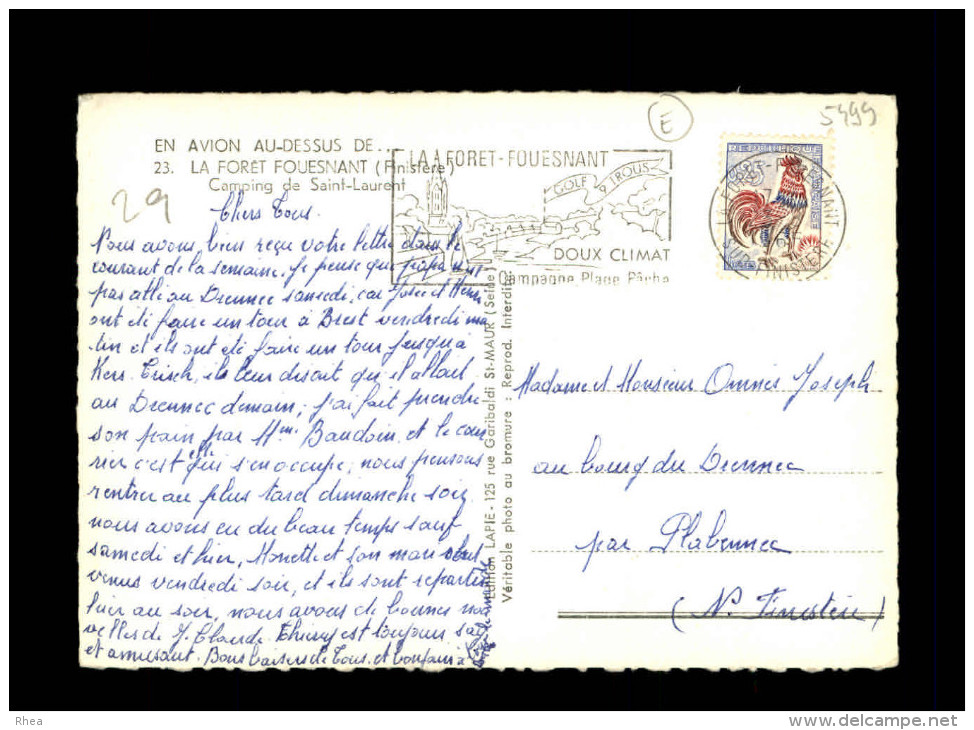 E
5499
EN AVION AU-DESSUS DE...
23. LA FORÊT FOUESNANT (Finistère)
Camping de Saint-Laurent
29
LA FORET-FOUESNANT
GOLF 9 TROUS
DOUX CLIMAT
Campagne Plage Pêche
REPUBLIQUE
FRANCAISE
SUD-FINISTERE
Chers Tous.
Nous avons bien reçu votre lettre dans le
courant de la semaine. Je pense que papa
pas allé au Drennec samedi, car José et Henri
ont été faire un tour à Brest vendredi ma
tin et ils ont été faire un tour jusqu'à
Kers. ils leur disait qu'il allait
au Drennec demain; j'ai fait prendre
son pain par Mme Baudoin et le cour
rier c'est elle qui s'en occupe; nous pensons
rentrer au plus tard dimanche soir
nous avons eu du beau temps sauf
samedi et hier, Monette et son mari
venus vendredi soir, et ils sont repartis
hier au soir, nous avons de bonnes nou
velles de J. Claude. Thierry est toujours sage
et amusant. Bons baisers de Tous. et
Edition LAPIE - 125 rue Garibaldi St-MAUR (Seine)
Véritable photo au bromure : Reprod. Interdite
Madame et Monsieur Omnès Joseph
au bourg du Drennec
par Plabennec
(N. Finistère)
Rhea
www.delcampe.net